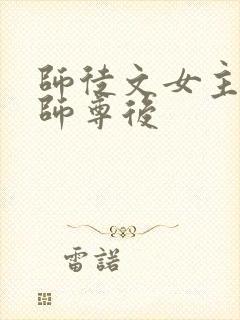 師徒文女主
師尊後
雷諾